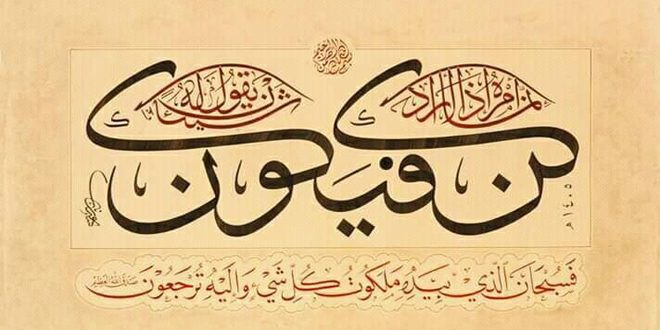 بسم الله الرحمن الرحيم
إنما أمره إذا أراد شيئا أن يقول له
كن فيكون
١٤٠٥
فَسُبْحَانَ الَّذِي بِيَدِهِ مَلَكُوتُ كُلِّ شَيْءٍ وَإِلَيْهِ تُرْجَعُونَ
صدق الله العظيم